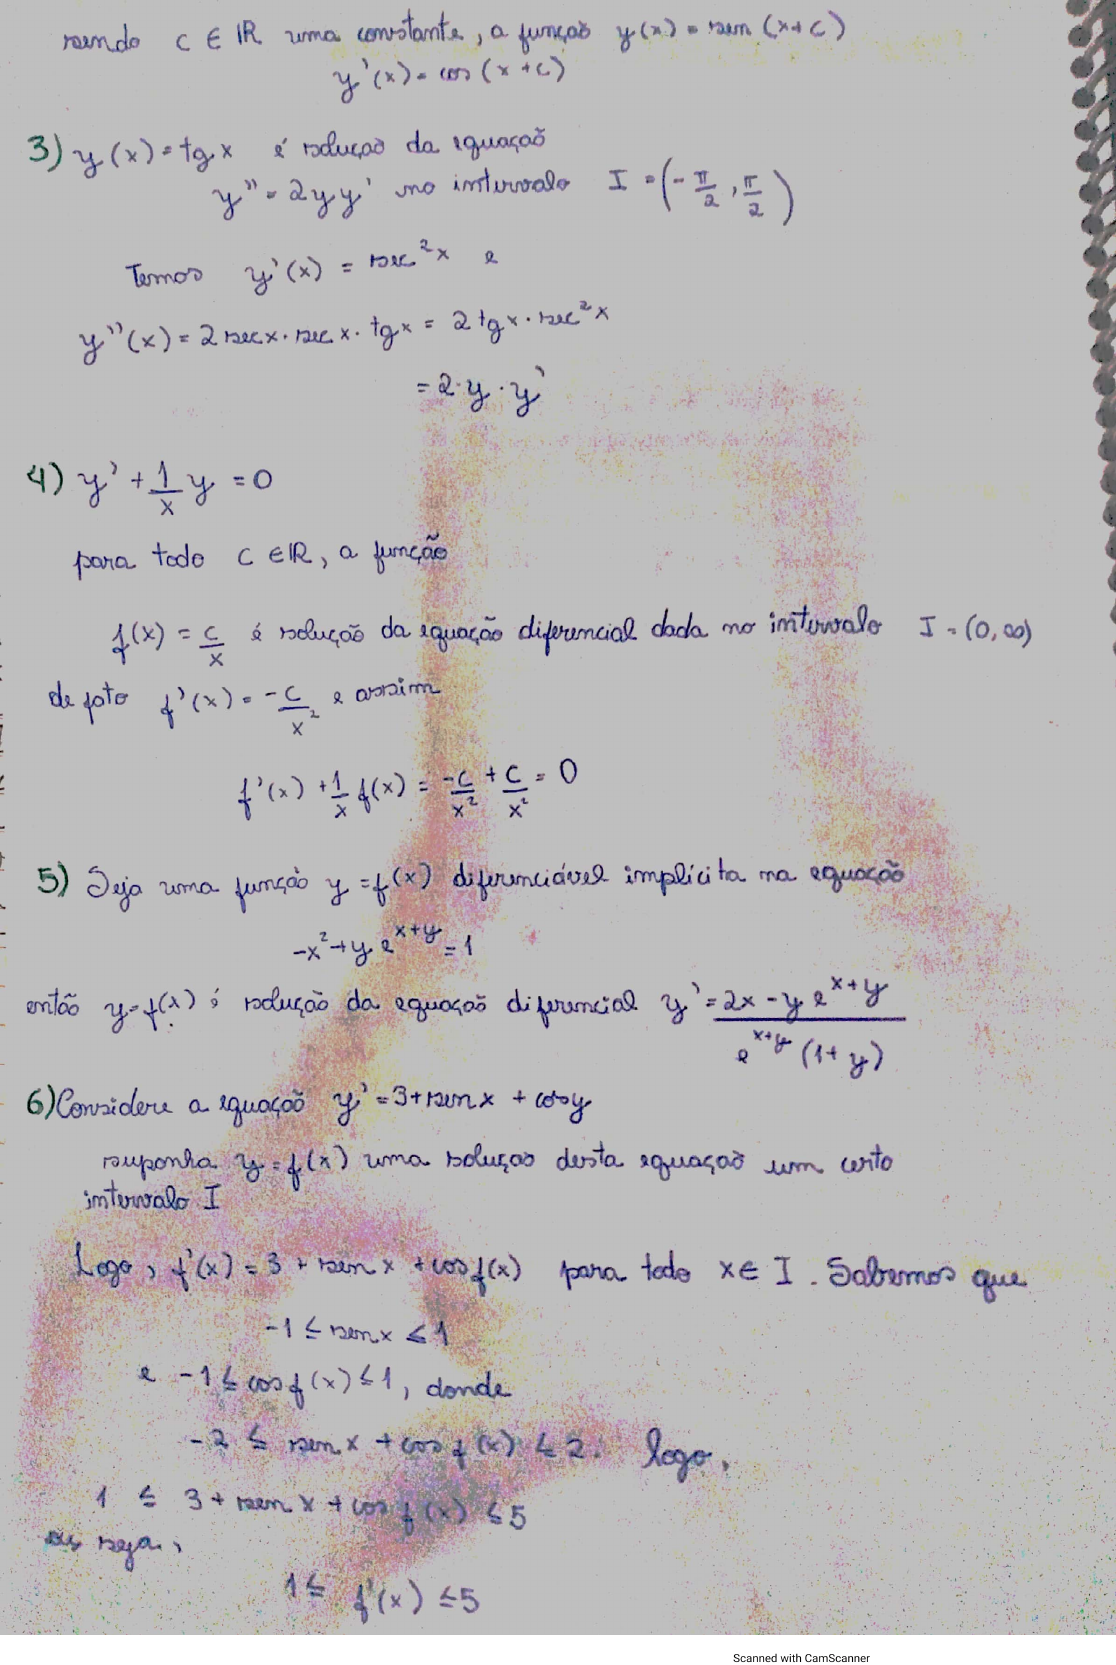 sendo c ∈ IR uma constante, a função y(x) = sen (x+c)
y'(x) = cos (x+c)
3) y(x) = tg x é solução da equação
y'' = 2yy' no intervalo I = (-π/2, π/2)
Temos y'(x) = sec²x e
y''(x) = 2 sec x · sec x · tg x = 2 tg x · sec²x
= 2·y·y'
4) y' + 1/x y = 0
para todo c ∈ IR, a função
f(x) = c/x é solução da equação diferencial dada no intervalo I = (0,∞)
de fato f'(x) = -c/x² e assim
f'(x) + 1/x f(x) = -c/x² + c/x² = 0
5) Seja uma função y = f(x) diferenciável implícita na equação
-x² + y e^(x+y) = 1
então y = f(x) é solução da equação diferencial y' = (2x - y e^(x+y))/(e^(x+y) (1+y))
6) Considere a equação y' = 3 + sen x + cos y
suponha y = f(x) uma solução desta equação um certo
intervalo I
Logo, f'(x) = 3 + sen x + cos f(x) para todo x ∈ I. Sabemos que
-1 ≤ sen x ≤ 1
e -1 ≤ cos f(x) ≤ 1, donde
-2 ≤ sen x + cos f(x) ≤ 2. logo,
1 ≤ 3 + sen x + cos f(x) ≤ 5
ou seja,
1 ≤ f'(x) ≤ 5
Scanned with CamScanner